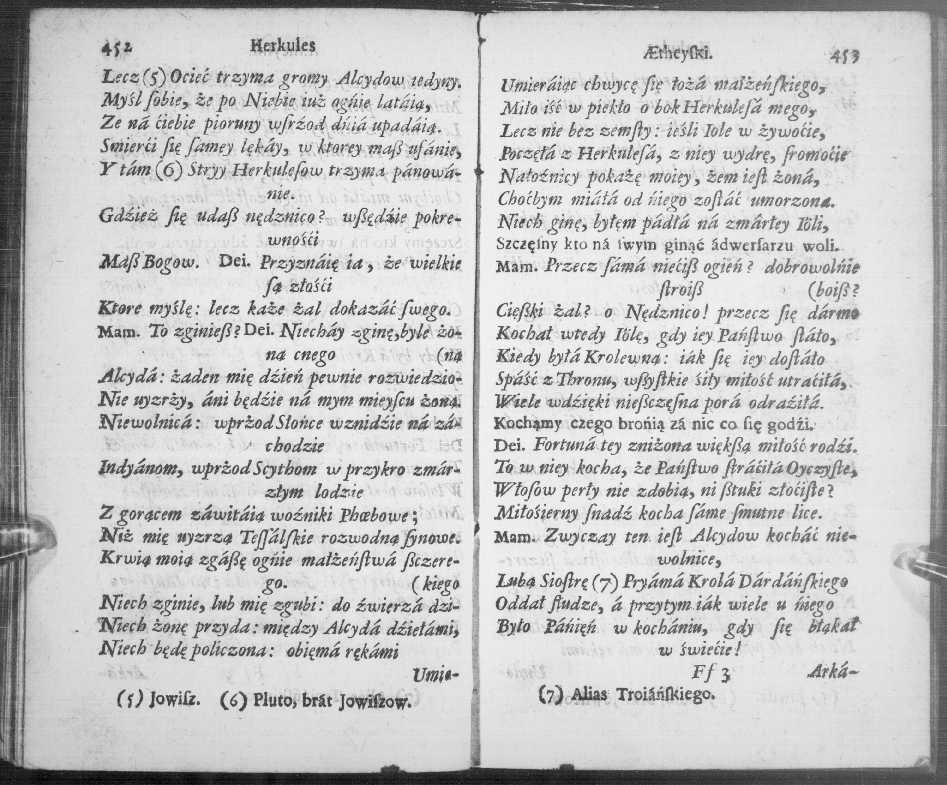 452 Herkules
Lecz (5) Ocieć trzyma gromy Alcydow iedyny.
Myśl ſobie, że po Niebie iuż ognie latáią,
Że ná ćiebie pioruny wſrzod dniá upadáią.
Smierći ſię ſámey lękáy, w ktorey maß ufánie,
Y tám (6) Stryy Herkuleſow trzyma pánowá-
nie.
Gdźież ſię udaß nędznico? wßędźie pokre-
wnośći
Máß Bogow. Dei. Przyznáię ia, że wielkie
ſą złośći
Ktore myślę: lecz każe żal dokazáć ſwego.
Mam. To zginieß? Dei. Niecháy zginę, byle żo-
ną cnego (ną
Alcydá: żaden mię dźień pewnie rozwiedzio-
Nie uyzrży, áni będźie ná mym mieyſcu żoną.
Niewolnicá: wprżod Słońce wznidźie ná zá-
chodzie
Indyánom, wprżod Scythom w przykro zmár-
złym lodzie
Z gorącem záwitáią woźniki Phœbowe;
Niż mię uyzrzą Teſſálſkie rozwodną ſynowe.
Krwią moią zgáßę ogńie małżeńſtwá ſzczere-
go. (kiego
Niech zginie, lub mię zgubi: do źwierzá dzi-
Niech żonę przyda: między Alcydá dźiełámi,
Niech będę policzona: obięmá rękámi
Umie-
(5) Jowiſz. (6) Pluto, brát Jowiſzow.
Ætheyſki. 453
Umieráiąc chwycę ſię łożá małżeńſkiego,
Miło iść w piekło o bok Herkuleſá mego,
Lecz nie bez zemſty: ieśli Iole w żywoćie,
Poczęłá z Herkuleſá, z niey wydrę, ſromoćie
Nałoźnicy pokażę moiey, żem ieſt żoná,
Choćbym miáłá od ńiego zoſtáć umorzona.
Niech ginę, byłęm pádłá ná zmárłey Iöli,
Szczęſny kto ná ſwym ginąć ádwerſarzu woli.
Mam. Przecz ſámá niećiß ogień? dobrowolńie
ſtroiß (boiß?
Cięſßki żal? o Nędznico! przecz ſię dármo
Kochał wtedy Iölę, gdy iey Pańſtwo ſtáło,
Kiedy byłá Krolewną: iák ſię iey doſtáło
Spáść z Thronu, wßyſtkie śiły miłość utraćiłá,
Wiele wdźięki nießczęſna porá odraźiłá.
Kochámy czego bronią zá nic co ſię godźi.
Dei. Fortuná tey zniżona więkßą miłość rodźi.
To w niey kocha, że Páńſtwo ſtráćiłá Oyczyſte,
Włoſow perły nie zdobią, ni ßtuki złoćiſte?
Miłośierny ſnadź kocha ſáme ſmutne lice.
Mam. Zwyczay ten ieſt Alcydow kocháć nie-
wolnice,
Lubą Sioſtrę (7) Pryámá Krolá Dárdáńſkiego
Oddał ſłudze, á przytym iák wiele u ńiego
Było Páńięń w kochániu, gdy ſię błąkał
w świećie!
Ff 3 Arká-
(7) Alias Troiáńſkiego.